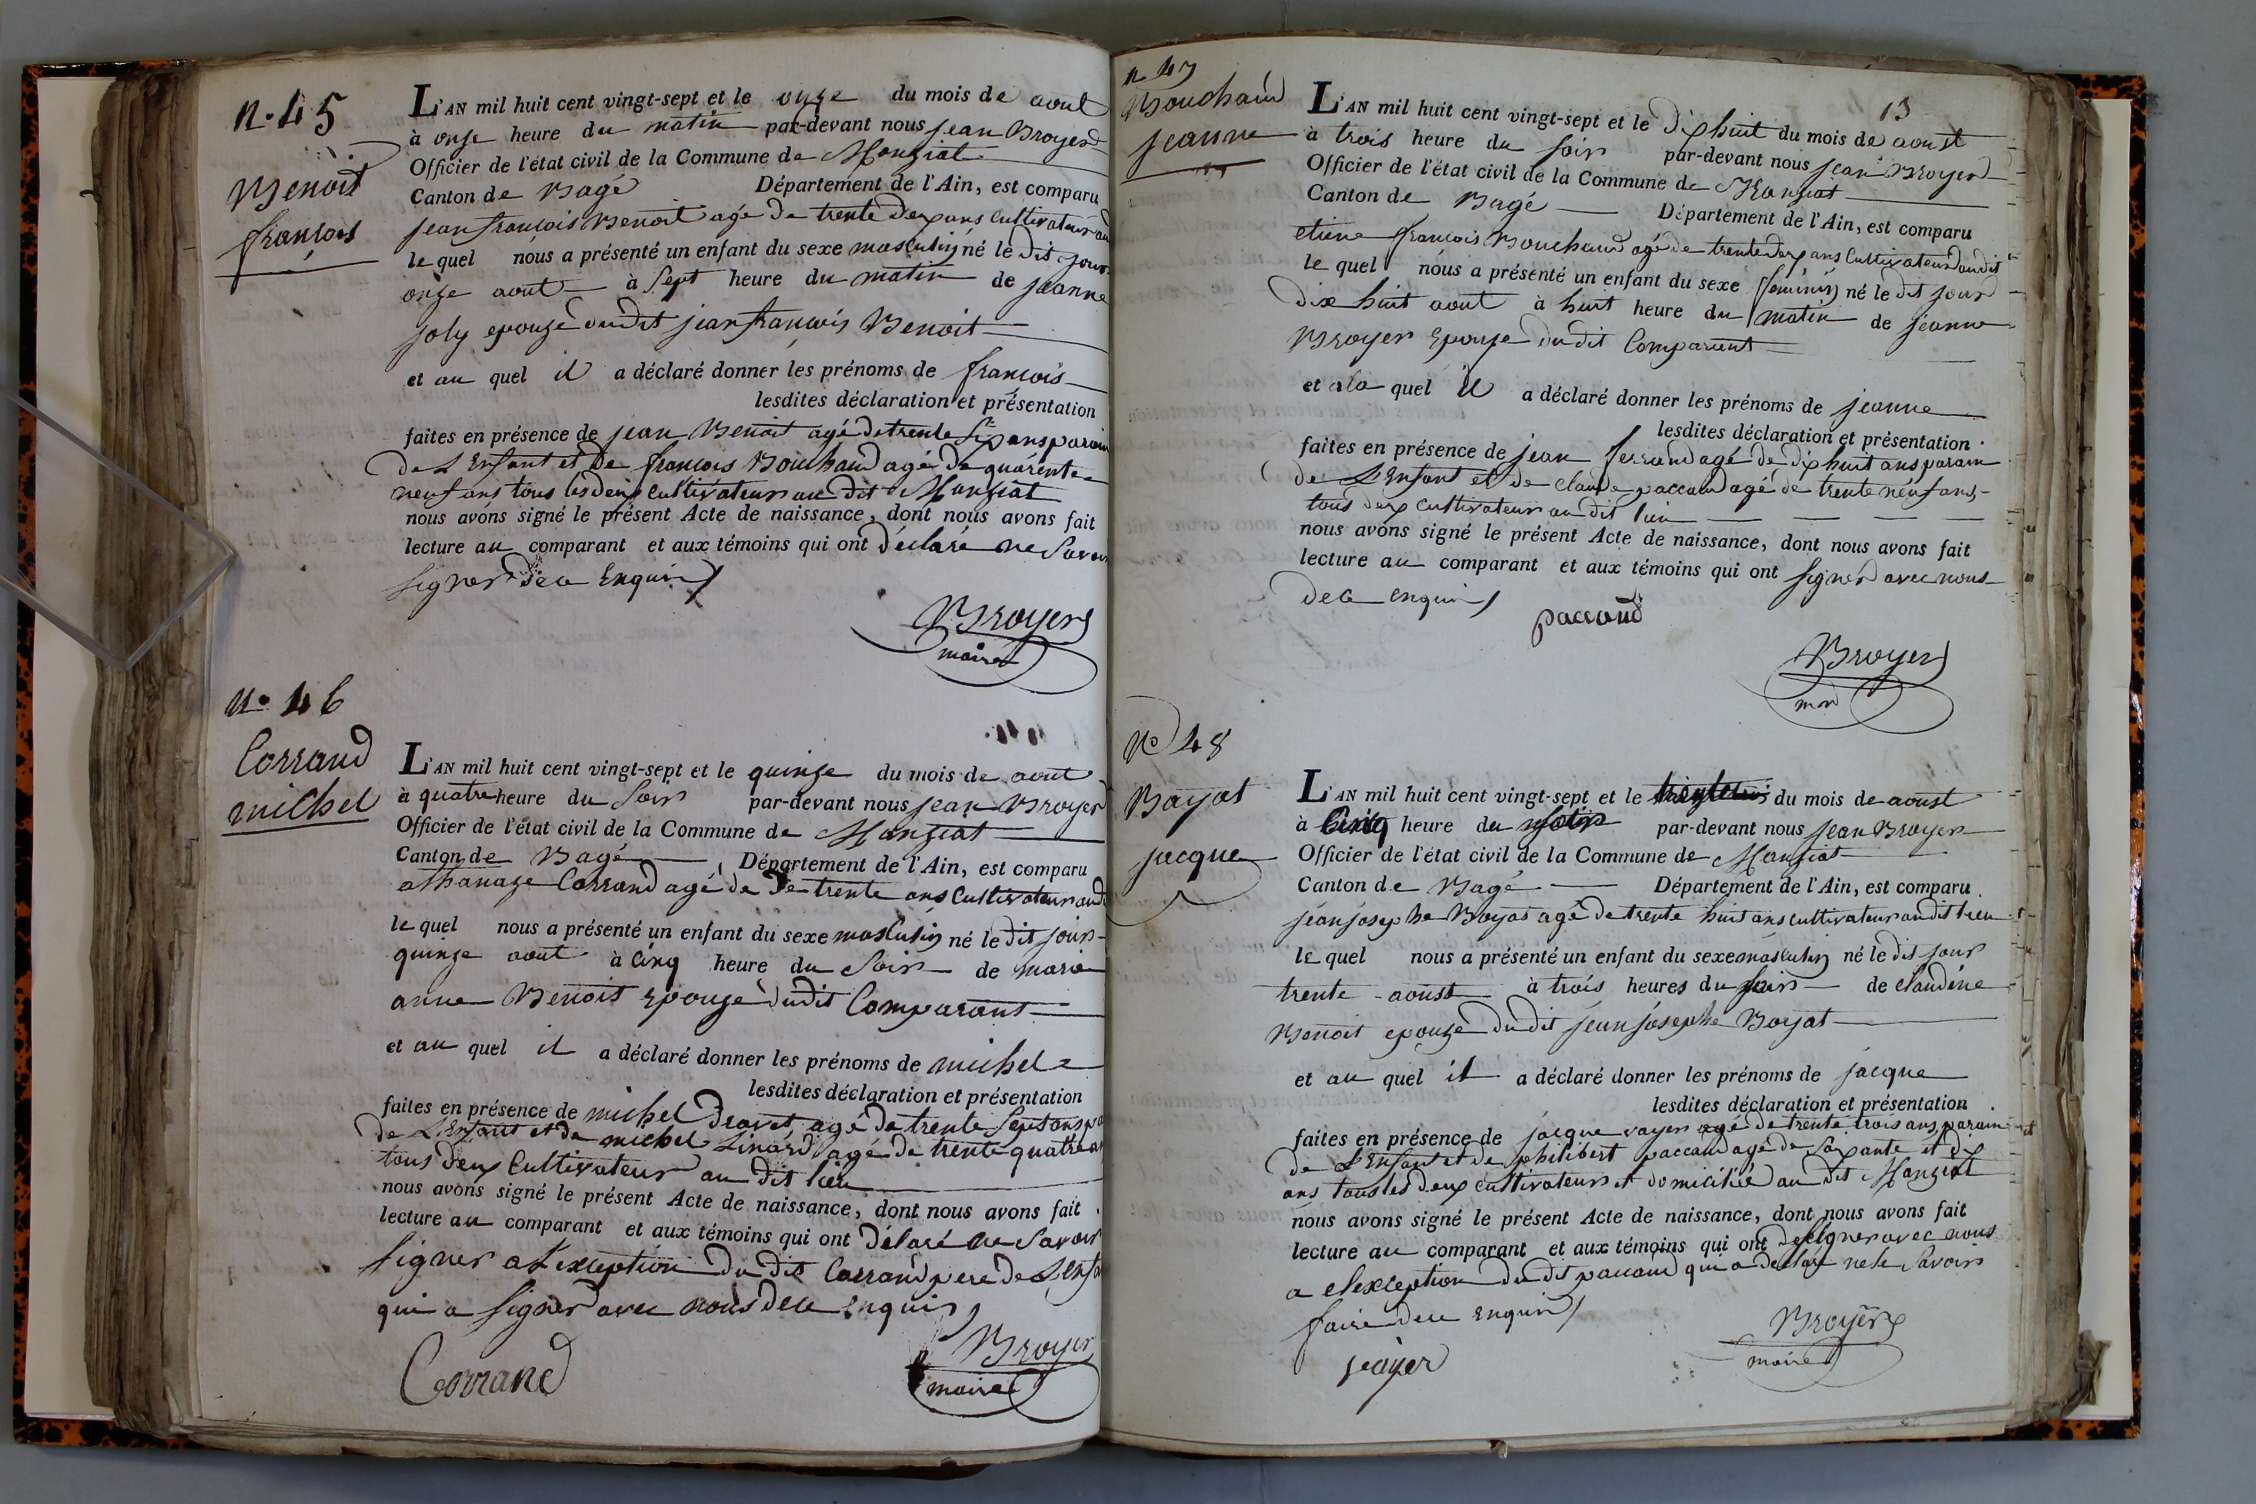 n. 45
Benoit
françois
L'AN mil huit cent vingt-sept et le onze du mois de aout
à onze heure du matin par-devant nous jean Broyer
Officier de l'état civil de la Commune de Manziat
Canton de Bagé Département de l'Ain, est comparu
jean françois Benoit agé de trente dex ans cultivateur au
le quel nous a présenté un enfant du sexe masculin né le dit jour
onze aout à sept heure du matin de jeanne
joly epouze dudit jean françois Benoit
et au quel il a déclaré donner les prénoms de françois
lesdites déclaration et présentation
faites en présence de jean Benoit agé de trente six ans parain
de L'Enfant et De françois Bouchaud agé de quarente
neuf ans tous les deux cultivateur au dit Manziat
nous avons signé le présent Acte de naissance, dont nous avons fait
lecture au comparant et aux témoins qui ont déclaré ne Savoir
signer de ce Enquis
Broyer
maire
N. 46
Corrand
michel
L'AN mil huit cent vingt-sept et le quinze du mois de aout
à quatre heure du Soir par-devant nous jean Broyer
Officier de l'état civil de la Commune de Manziat
Canton de Bagé Département de l'Ain, est comparu
athanaze Corrand agé de De trente ans Cultivateur aud
le quel nous a présenté un enfant du sexe masculin né le dit jour
quinze aout à cinq heure du Soir de marie
anne Benoit Epouze dudit Comparant
et au quel il a déclaré donner les prénoms de michel
lesdites déclaration et présentation
faites en présence de michel agé de trente sept ans pa
de L'Enfant et de michel agé de trente quatre an
tous deux Cultivateur au dit lieu
nous avons signé le présent Acte de naissance, dont nous avons fait
lecture au comparant et aux témoins qui ont délaré ne Savoir
signer a L'exception du dit Corrand pere de L'enfa
qui a signer avec nous de ce enquis
Corrand
Broyer
maire
13
n. 47
Bouchaud
jeanne
L'AN mil huit cent vingt-sept et le dixhuit du mois de aoust
à trois heure du soir par-devant nous jean Broyer
Officier de l'état civil de la Commune de Manziat
Canton de Bagé Département de l'Ain, est comparu
etiene françois Bouchaud agé de trente dex ans Cultivateur audit
le quel nous a présenté un enfant du sexe feminin né le dit jour
dix huit aout à huit heure du matin de jeanne
Broyer Epouze du dit Comparent
et a la quel il a déclaré donner les prénoms de jeanne
lesdites déclaration et présentation
faites en présence de jean ferrand agé de dixhuit ans parain
de L'Enfant et de claude paccaud agé de trente neuf ans
tous dex cultivateur au dit lieu
nous avons signé le présent Acte de naissance, dont nous avons fait
lecture au comparant et aux témoins qui ont signer avec nous
de ce enquis
paccaud
Broyer
N° 48
Boyat
jacque
L'AN mil huit cent vingt-sept et le du mois de aoust
à Cinq heure du par-devant nous jean Broyer
Officier de l'état civil de la Commune de Manziat
Canton de Bagé Département de l'Ain, est comparu
jean josephe Boyat agé de trente huit ans cultivateur au dit lieu
le quel nous a présenté un enfant du sexe masculin né le dit jour
trente aoust à trois heures du soir de claudine
Benoit epouze du dit jean josephe Boyat
et au quel il a déclaré donner les prénoms de jacque
lesdites déclaration et présentation
faites en présence de jacque vayer agé de trente trois ans parain
de L'Enfant et de philibert paccaud agé de soixante et dix
ans tous les deux cultivateur et domicilié au dit Manziat
nous avons signé le présent Acte de naissance, dont nous avons fait
lecture au comparant et aux témoins qui ont signer avec nous
a elexception du dit paccaud qui a declaré ne le Savoir
faire de ce enquis
vayer
Broyer
maire